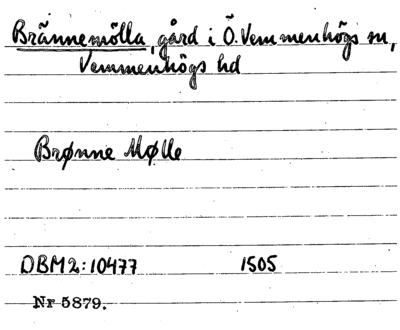 Brännemölla, gård i Ö. Vemmenhögs sn,
Vemmenhögs hd
Brønne Mølle
DBM2:10477 1505
Nr 5879.